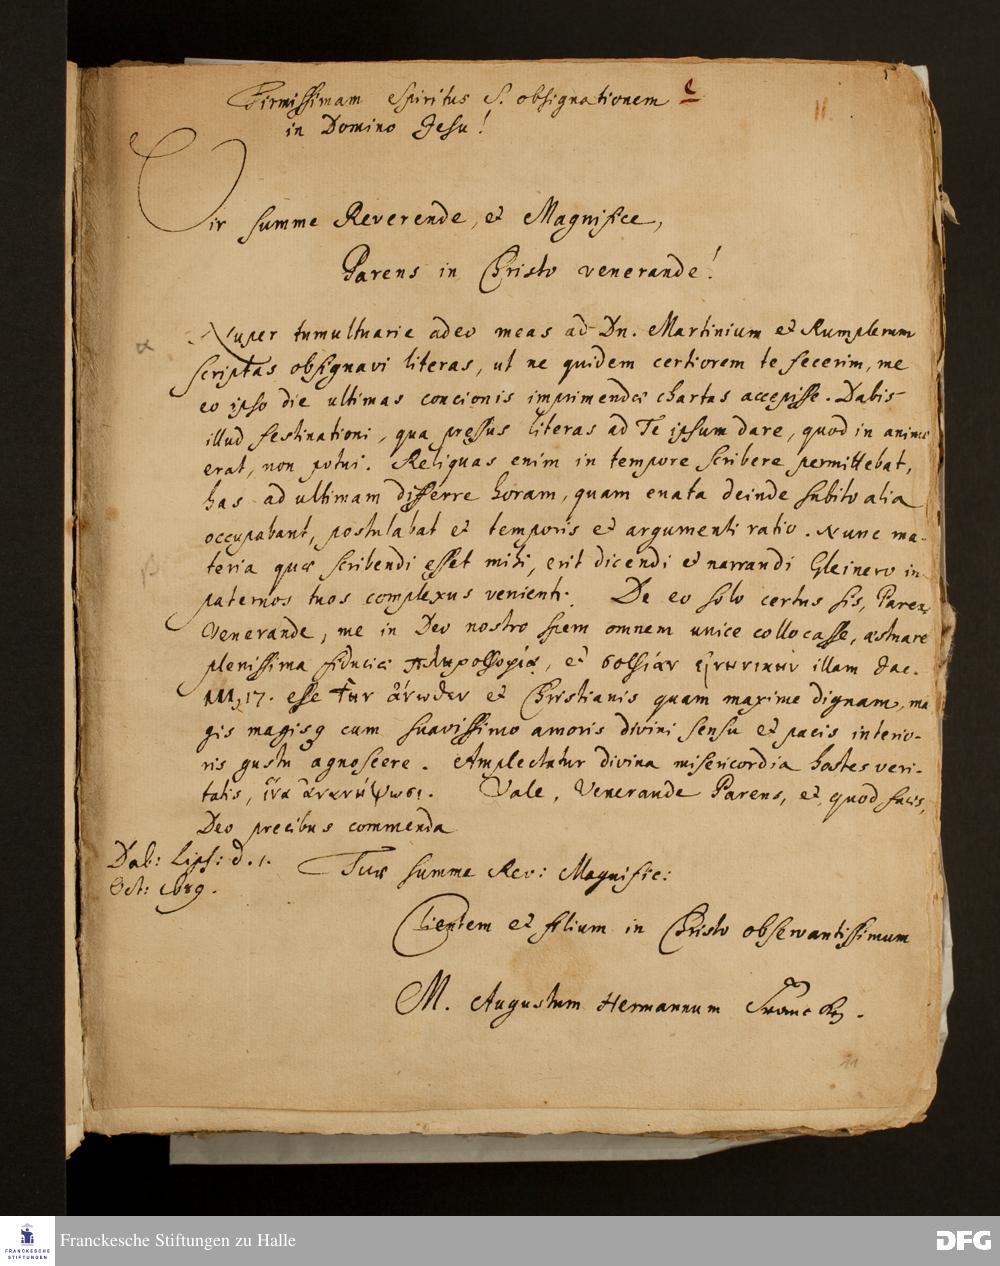 Firmissimam Spiritus S. obsignationem
in Domino Jesu!
11.
Vir summe Reverende, et Magnifice,
Parens in Christo venerande!
α
Nuper tumultuarie adeo meas ad Dn. Martinium et Rumplerum
scriptas obsignavi literas, ut ne quidem certiorem te fecerim, me
eo ipso die ultimas concionis imprimendæ chartas accepisse. Dabis
illud festinationi, qua pressus literas ad Te ipsum dare, quod in animo
erat, non potui. Reliquas enim in tempore scribere permittebat,
has ad ultimam differre horam, quam enata deinde subito alia
occupabant, postulabat et temporis et argumenti ratio. Nunc ma-
β
teria quæ scribendi esset mihi, erit dicendi et narrandi Gleinero in
paternos tuos complexus venienti. De eo solo certus sis, Parens
Venerande, me in Deo nostro spem omnem unice collocasse, æstuare
plenissima fiduciæ πληροφορίᾳ, et σοφίαν εἰρηνικὴν illam Jac.
III, 17. esse τὴν ἄνωθεν et Christianis quam maxime dignam, ma
gis magisq cum suavissimo amoris divini sensu et pacis interio-
ris gustu agnoscere. Amplectatur divina misericordia hostes veri-
tatis, ἵνα ἀνανήψωσι. Vale, Venerande Parens, et, quod facis,
Deo precibus commenda
Dab: Lips: d. 1.
Oct: 1689.
Tuæ summe Rev: Magnific:
Clientem et filium in Christo observantissimum
M. Augustum Hermannum Francken.
11
FRANCKESCHE
STIFTUNGEN
Franckesche Stiftungen zu Halle
DFG